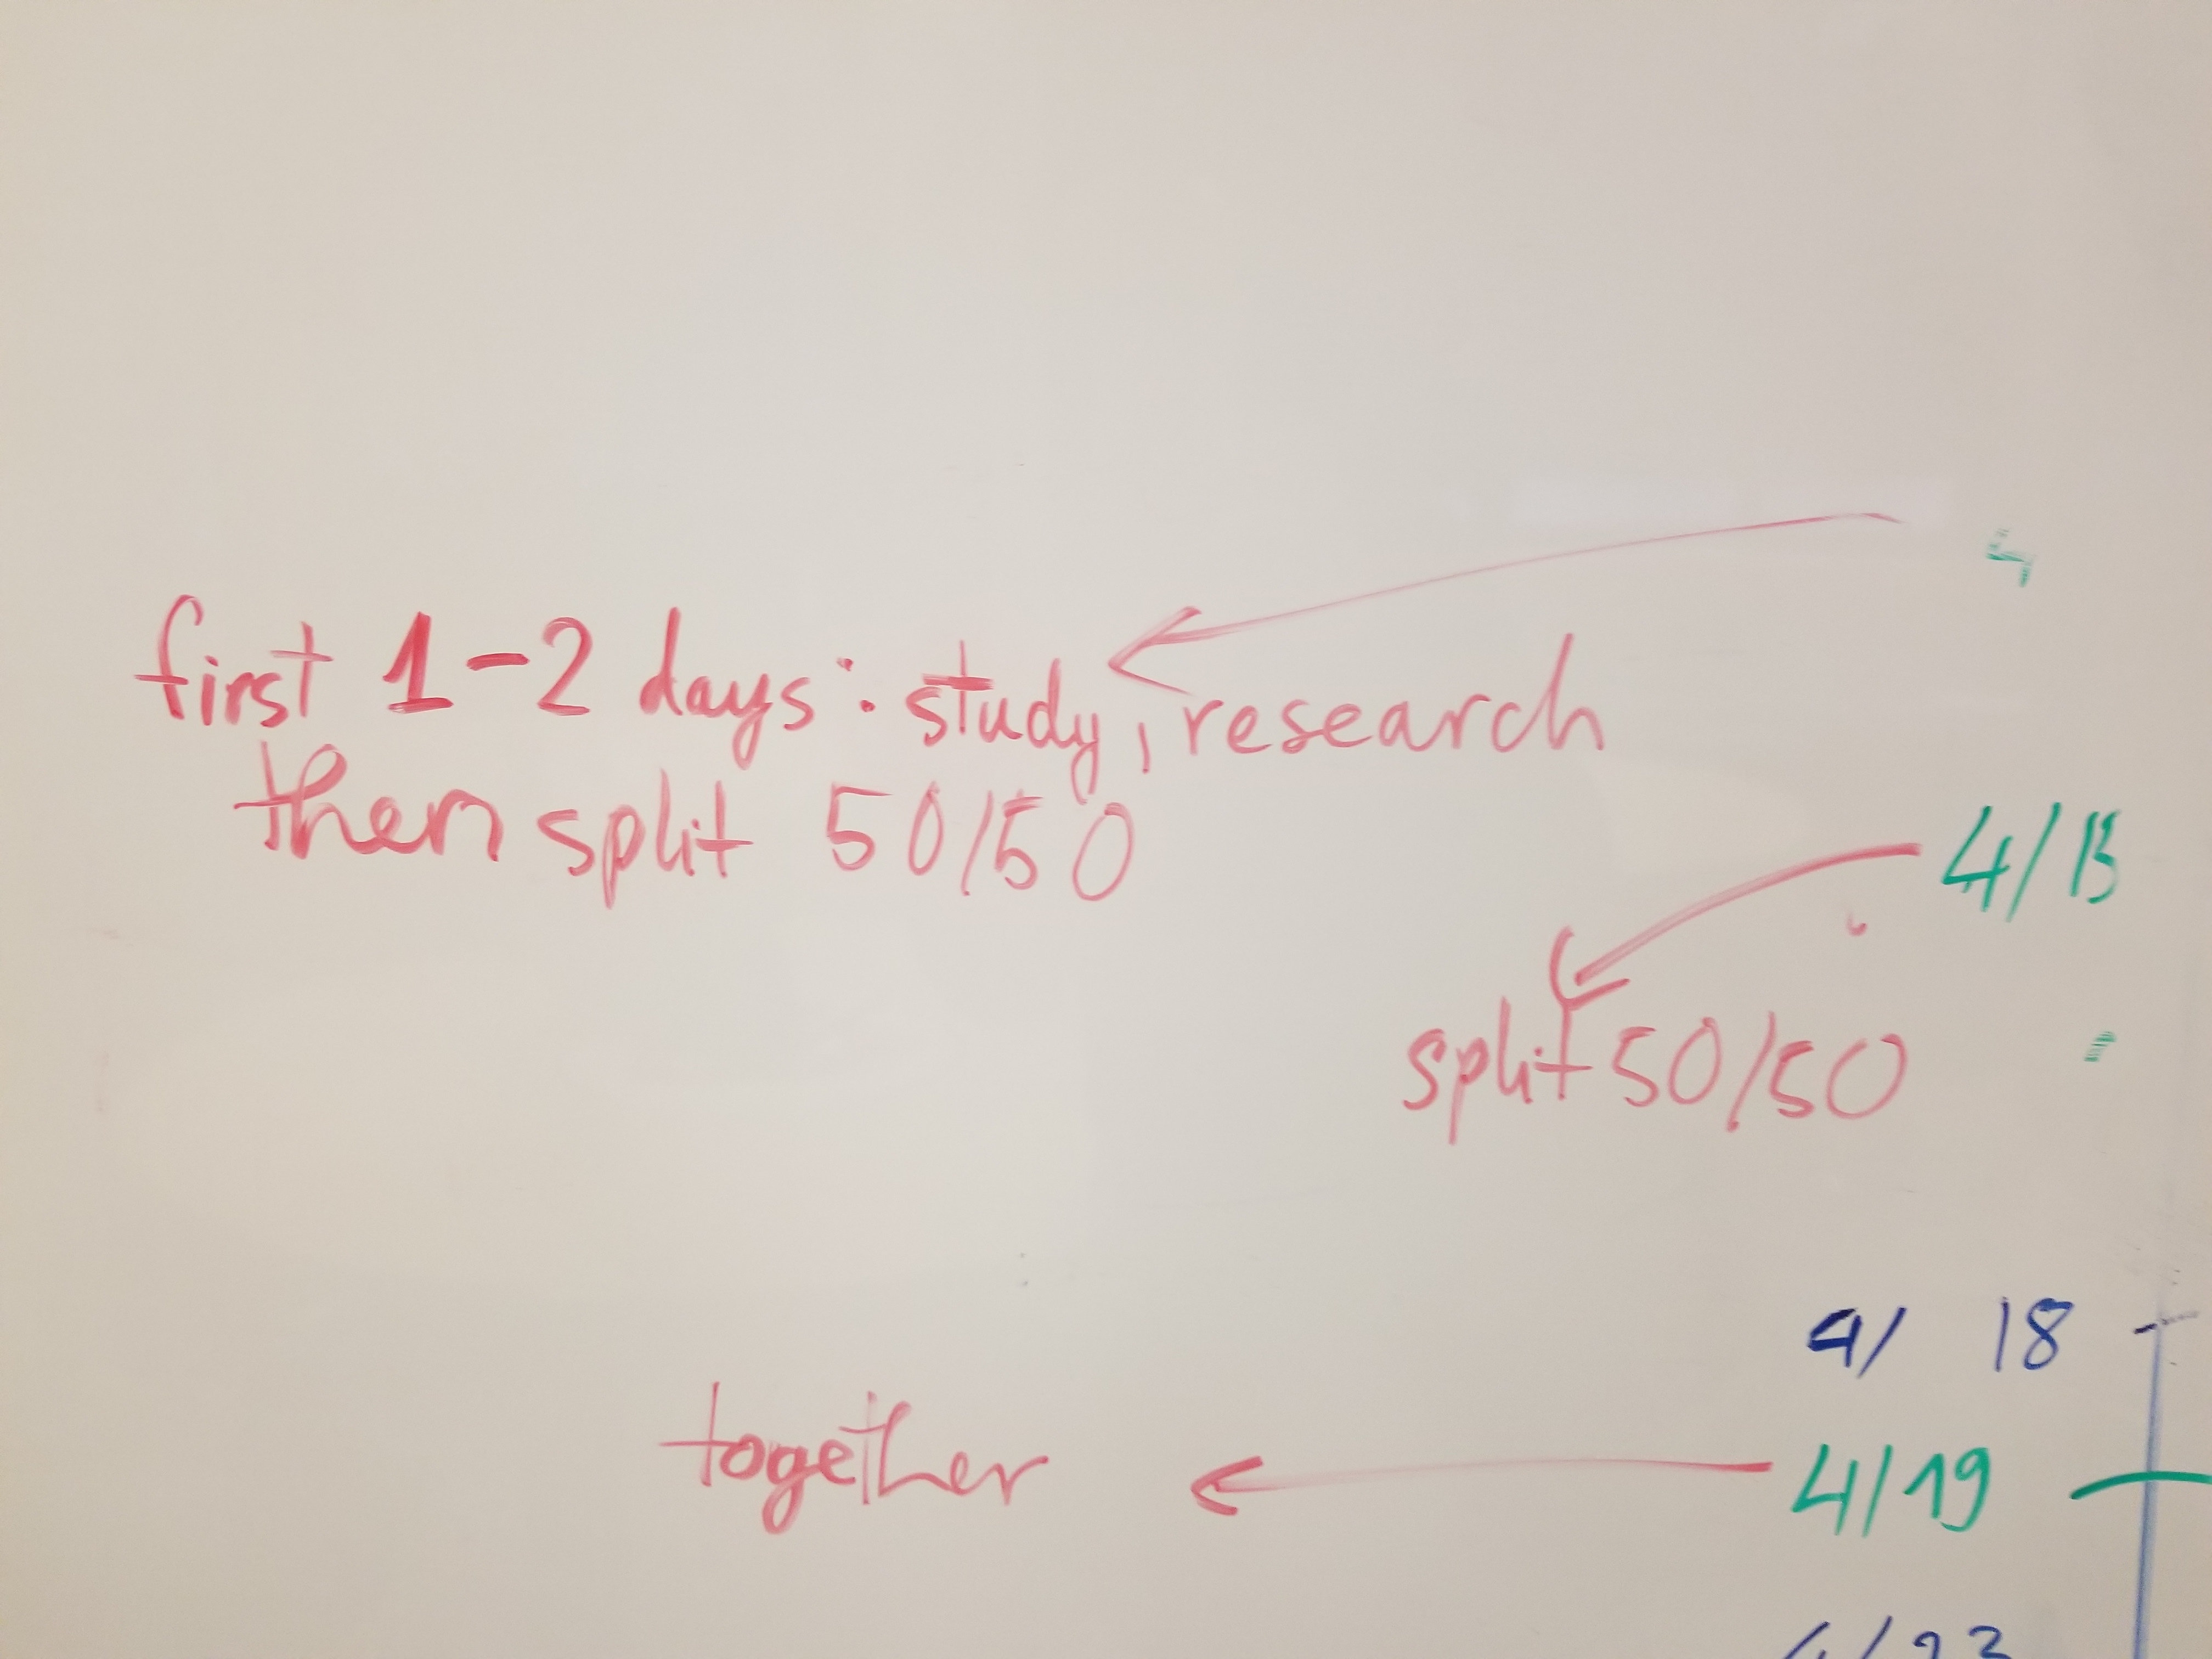 first 1-2 days: study, research
then split 50/50
split 50/50
4/ 18
together
4/19